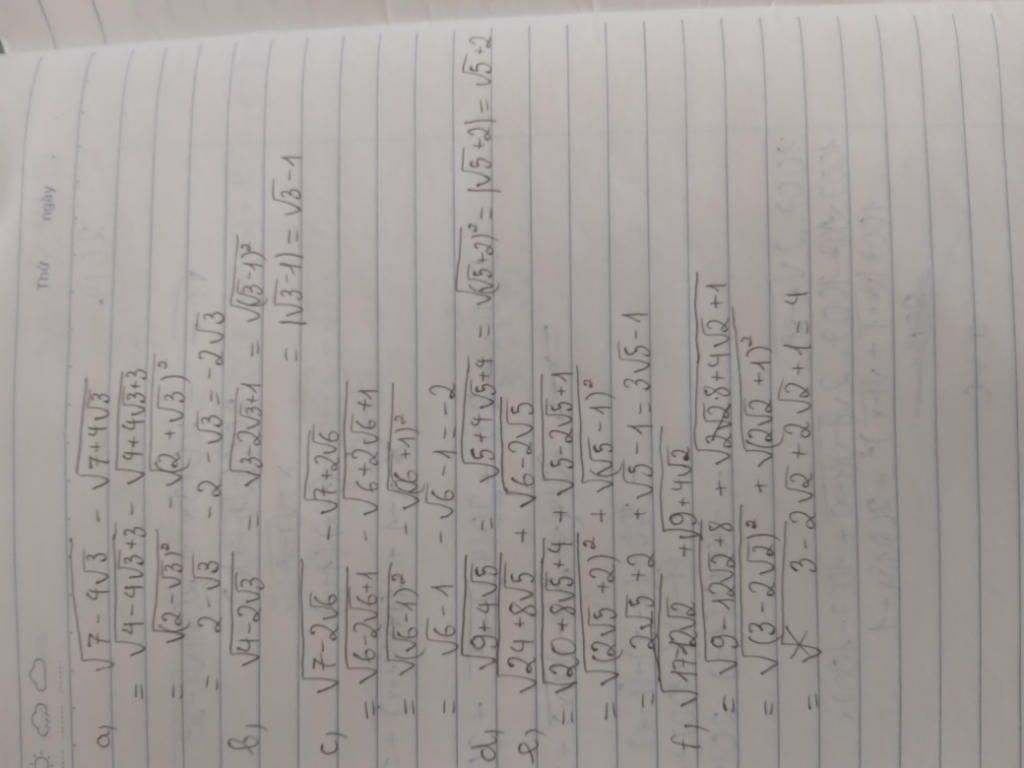 Thứ ngày
a) √(7-4√3) - √(7+4√3)
= √(4-4√3+3) - √(4+4√3+3)
= √(2-√3)² - √(2+√3)²
= 2-√3 - 2-√3 = -2√3
b) √(4-2√3) = √(3-2√3+1) = √(√3-1)²
= |√3-1| = √3-1
c) √(7-2√6) - √(7+2√6)
= √(6-2√6+1) - √(6+2√6+1)
= √(√6-1)² - √(√6+1)²
= √6-1 - √6-1 = -2
d) √(9+4√5) = √(5+4√5+4) = √(√5+2)² = |√5+2| = √5+2
e) √(24+8√5) + √(6-2√5)
= √(20+8√5+4) + √(5-2√5+1)
= √(2√5+2)² + √(√5-1)²
= 2√5+2 + √5-1 = 3√5-1
f) √(17-12√2) + √(9+4√2)
= √(9-12√2+8) + √(8+4√2+1)
= √(3-2√2)² + √(2√2+1)²
= 3-2√2+2√2+1 = 4